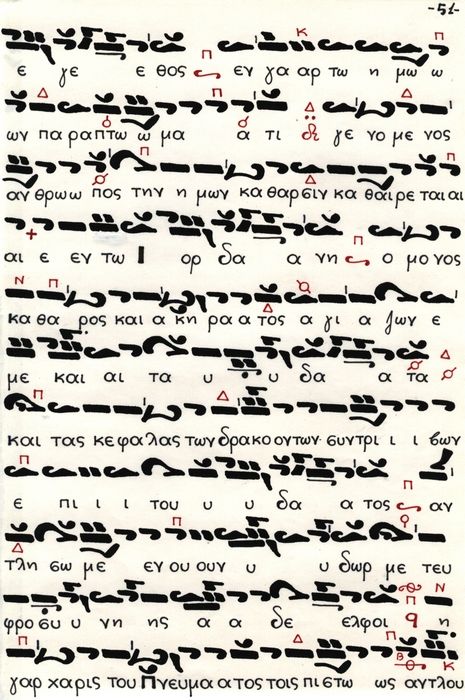 -51-
ε γε ε θος εν γα αρ τω η μω ω
ων παραπτω ω μα α τι δι γε νο με νος
αν θρωω πος την η μων κα θαρσιν κα θαι ρε ται αι
αι ε εν τω Ι ορ δα α νη ο μο νος
κα θα ρος και α κη ρα α τος α γι α ζων ε
με και αι τα υ υ δα α τα
και τας κε φα λας των δρακο οντων συντρι ι ι βων
ε πι ι ι του υ υ δα α τος αν
τλη σω με εν ου ουν υ υ δωρ με τευ
φρο συ υ νη ης α α δε ελφοι η
γαρ χαρις του Πνευμα ατος τοις πι στω ως αντλου